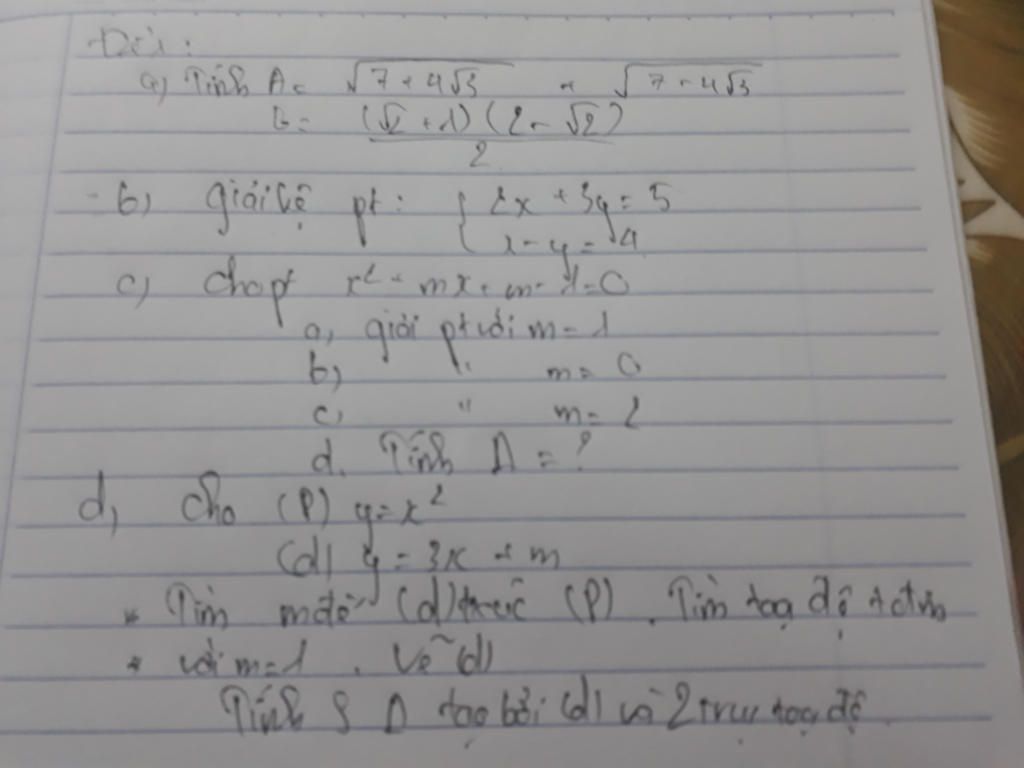 Đề 1:
a) Tính A = √(7 + 4√3) + √(7 - 4√3)
B = (√2 + 1)(2 - √2) / 2
b) giải hệ pt: { 2x + 3y = 5
x - y = 4
c) Cho pt x² - mx + m - 1 = 0
a, giải pt với m = 1
b) " m = 0
c, " m = 2
d. Tính Δ = ?
d, Cho (P) y = x²
(d) y = 3x + m
* Tìm m để (d) txúc (P). Tìm toạ độ
* với m = 1. Vẽ (d)
Tính S Δ tạo bởi (d) và 2 trục toạ độ.